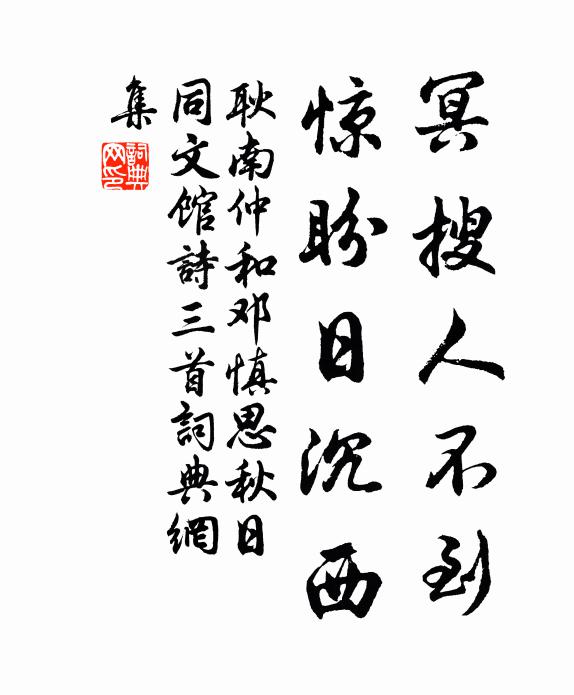 冥搜人不到
惊盼日沉西
耿南仲和邓慎思秋日
同文馆詩三首詞典網
集
詞典
网印